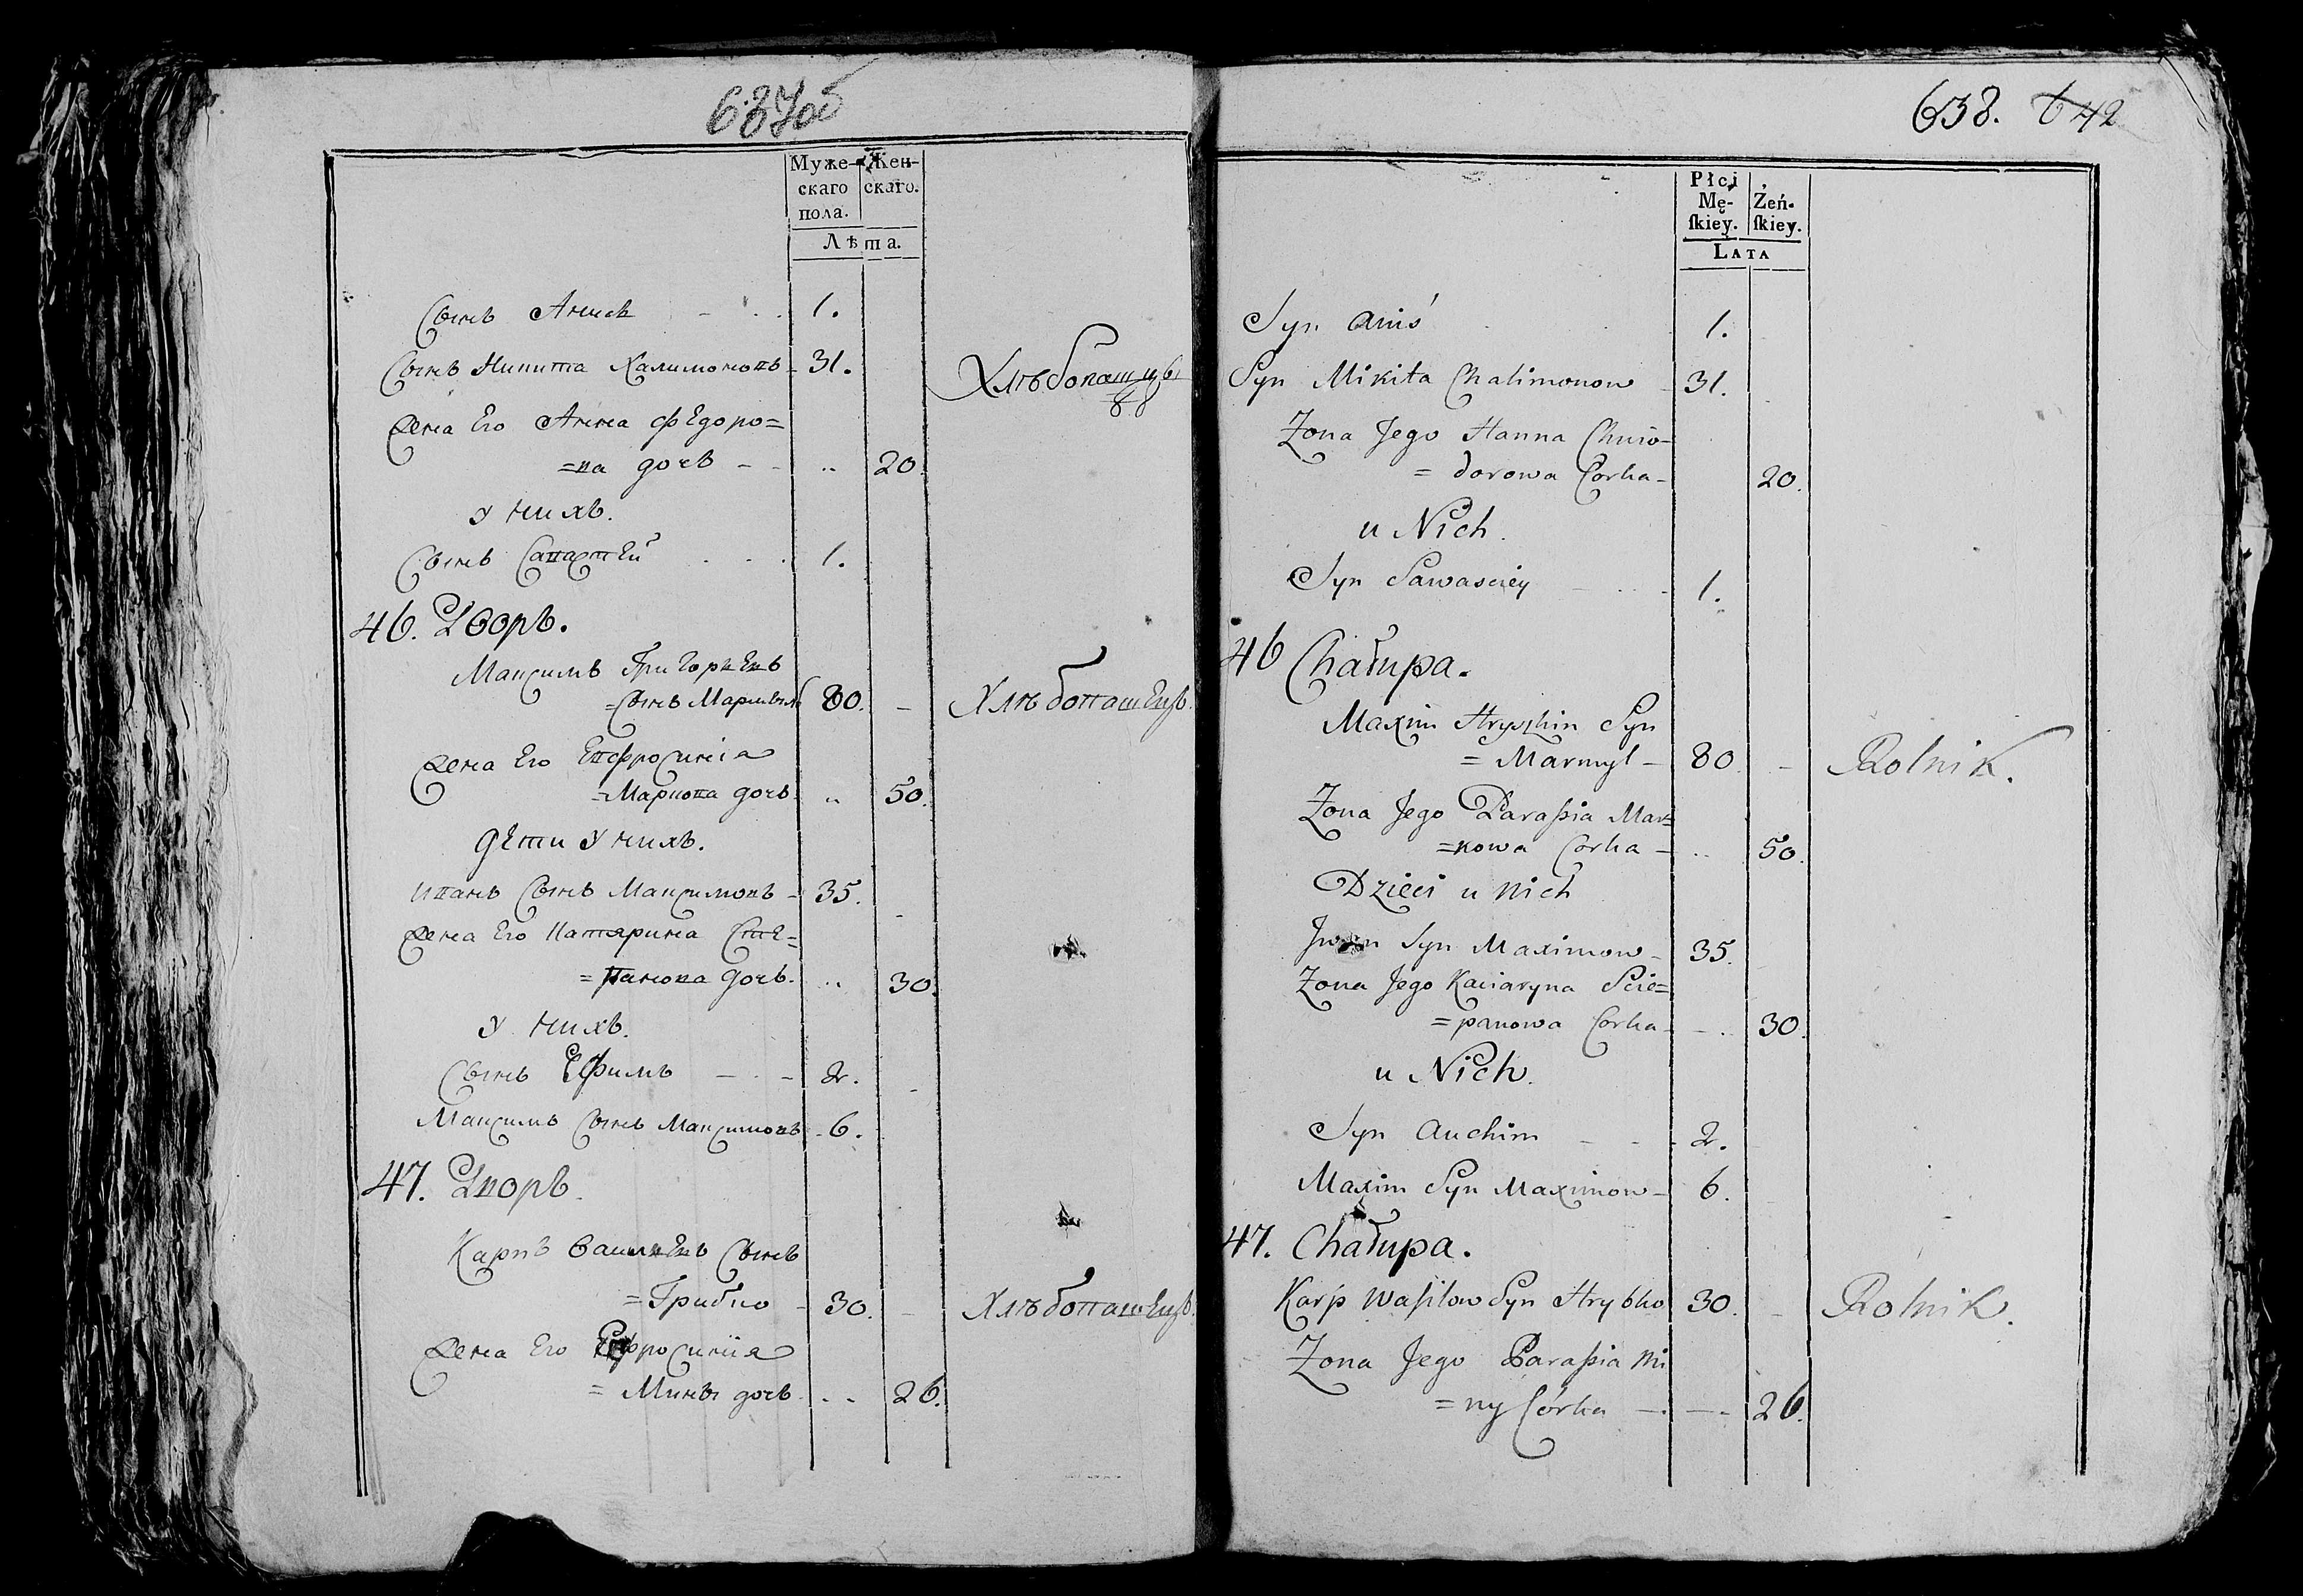 637об
Муже- Жен-
скаго скаго.
пола.
Лѣта.
Сынъ Анисъ 1.
Сынъ Никита Халимоновъ 31.
Жена Его Анна Федоро=
=ва дочь 20.
у нихъ.
Сынъ Савастей 1.
46. Дворъ.
Максимъ Григорьевъ
=Сынъ Мармылъ 80. Хлѣбопашецъ.
Жена Его Евфросинія
=Маркова дочь 50.
дети у нихъ.
Иванъ Сынъ Максимовъ 35.
Жена Его Катярина Сте=
=панова дочь. 30.
у нихъ.
Сынъ Ефимъ 2.
Максимъ Сынъ Максимовъ 6.
47. Дворъ.
Карпъ Васильевъ Сынъ
=Грибко 30. Хлѣбопашецъ.
Жена Его Ефросинія
= Мины дочь 26.
638. 642
Płci
Mę- Żeń-
skiey. skiey.
LATA
Syn Aniś 1.
Syn Mikita Chalimonow 31.
Zona Jego Hanna Chwio-
= dorowa Corka 20.
u Nich.
Syn Sawasciey 1.
46 Chałupa.
Maxim Hryszkin Syn
= Marmyl 80. Rolnik.
Zona Jego Paraßia Mar=
=kowa Corka 50.
Dzieci u nich
Jwan Syn Maximow 35.
Zona Jego Kaciaryna Scie=
=panowa Corka 30.
u Nich.
Syn Auchim 2.
Maxim Syn Maximow 6.
47. Chałupa.
Karp Wasilow Syn Hrybko 30. Rolnik.
Zona Jego Paraßia Mi
=ny Córka 26.